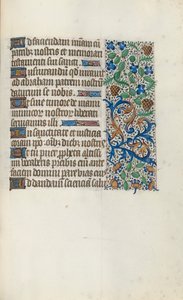 Ad faciendam miam cu
patribus nostris et memorari
testamenti sui sancti
Iusiurandum qd iuravit
ad abraham patrem nostrum
daturum se nobis
Ut sine timore de manu
inimicor nostror liberati
serviamus illi
In sanctitate et iusticia
coram ipo oibz diebz nostris
Et tu puer ppheta altissi
mi vocaberis preibis eni ante
faciem domini pare vias eius
Ad dandam scienciam salu